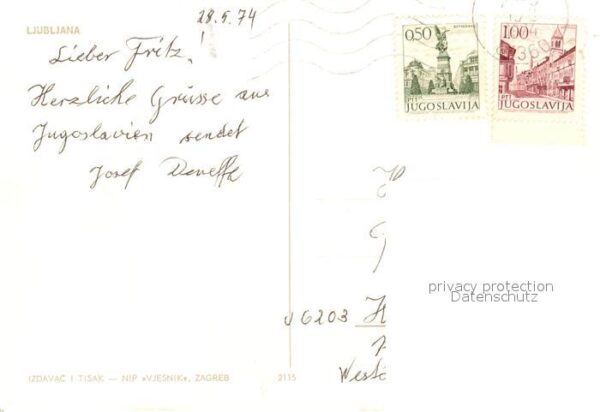 LJUBLJANA
28.5.74
Lieber Fritz!
Herzliche Grüsse aus
Jugoslavien sendet
Josef
0,50
PTT
JUGOSLAVIJA
1.00
PTT
JUGOSLAVIJA
privacy protection
Datenschutz
6203
IZDAVAČ I TISAK — NIP »VJESNIK«, ZAGREB
2115